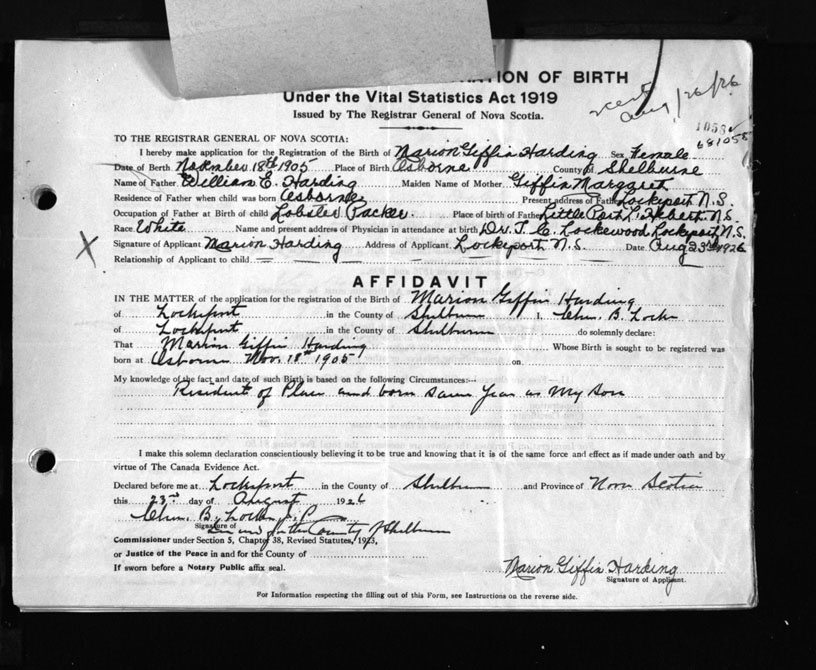 ION OF BIRTH
Under the Vital Statistics Act 1919
Issued by The Registrar General of Nova Scotia.
Aug/26/26
TO THE REGISTRAR GENERAL OF NOVA SCOTIA:
I hereby make application for the Registration of the Birth of Marion Giffin Harding Sex Female
Date of Birth November 18th 1905 Place of Birth Osborne County of Shelburne
Name of Father William E. Harding Maiden Name of Mother Giffin Margaret
Residence of Father when child was born Osborne Present address of Father Lockeport N.S.
Occupation of Father at Birth of child Lobster Packer. Place of birth of Father Little Port L'Hebert N.S.
Race White Name and present address of Physician in attendance at birth Dr. T. C. Lockewood Lockeport, N.S.
X Signature of Applicant Marion Harding Address of Applicant Lockeport N.S. Date Aug 23rd 1926
Relationship of Applicant to child
AFFIDAVIT
IN THE MATTER of the application for the registration of the Birth of Marion Giffin Harding
of Lockeport in the County of Shelburne I, B. Locke
of Lockeport in the County of Shelburne do solemnly declare:
That Marion Giffin Harding Whose Birth is sought to be registered was
born at Osborne Nov. 18th 1905 on
My knowledge of the fact and date of such Birth is based on the following Circumstances:—
Resident of Place and born same Year as My Son
I make this solemn declaration conscientiously believing it to be true and knowing that it is of the same force and effect as if made under oath and by
virtue of The Canada Evidence Act.
Declared before me at Lockeport in the County of Shelburne and Province of Nova Scotia
this 23rd day of August 1926
B. Locke J. P.
Signature of in and for the County of Shelburne
Commissioner under Section 5, Chapter 38, Revised Statutes, 1923,
or Justice of the Peace in and for the County of
If sworn before a Notary Public affix seal.
Marion Giffin Harding
Signature of Applicant.
For Information respecting the filling out of this Form, see Instructions on the reverse side.